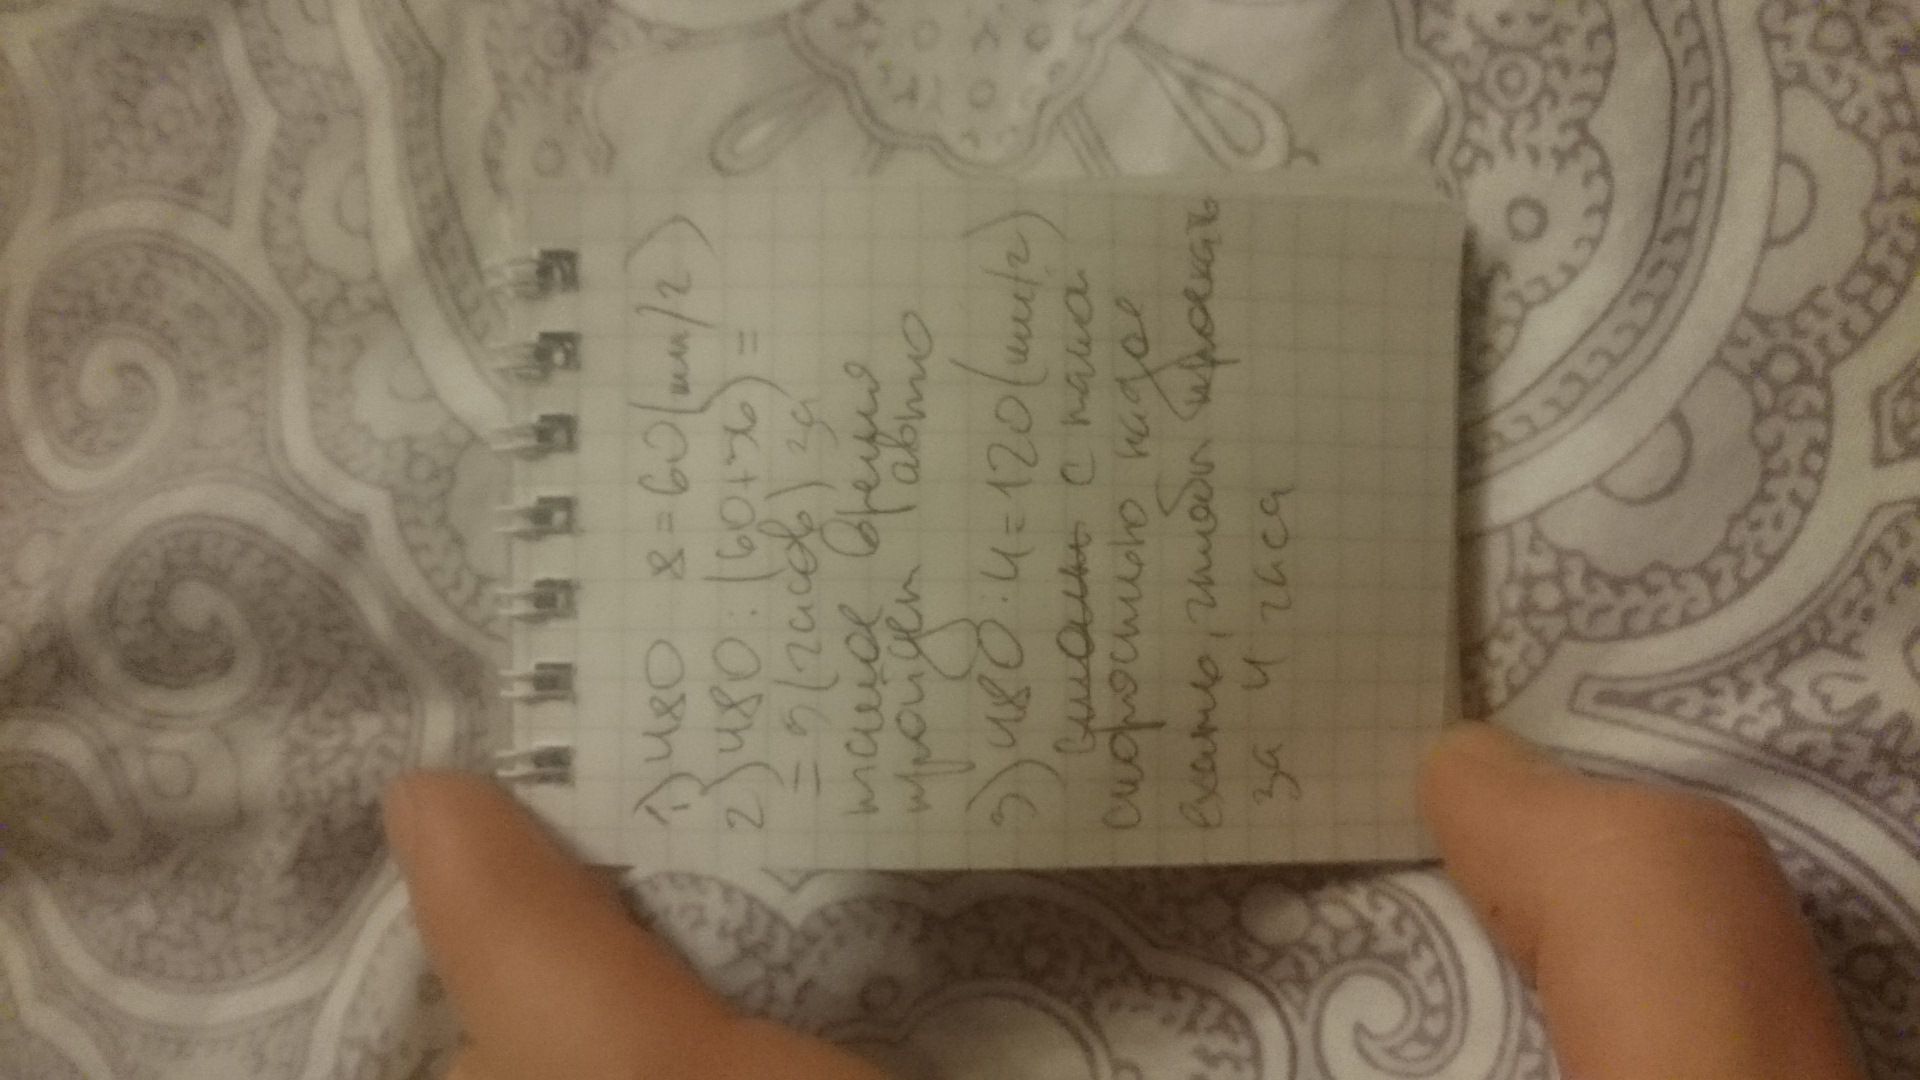 1) 480 8 = 60 (км/г)
2) 480 : (60 + 36) =
= 5 (часов) за
такое время
пройдет авто
3) 480 : 4 = 120 (км/г) 
с какой
скоростью надо
ехать, чтобы проехать
за 4 часа